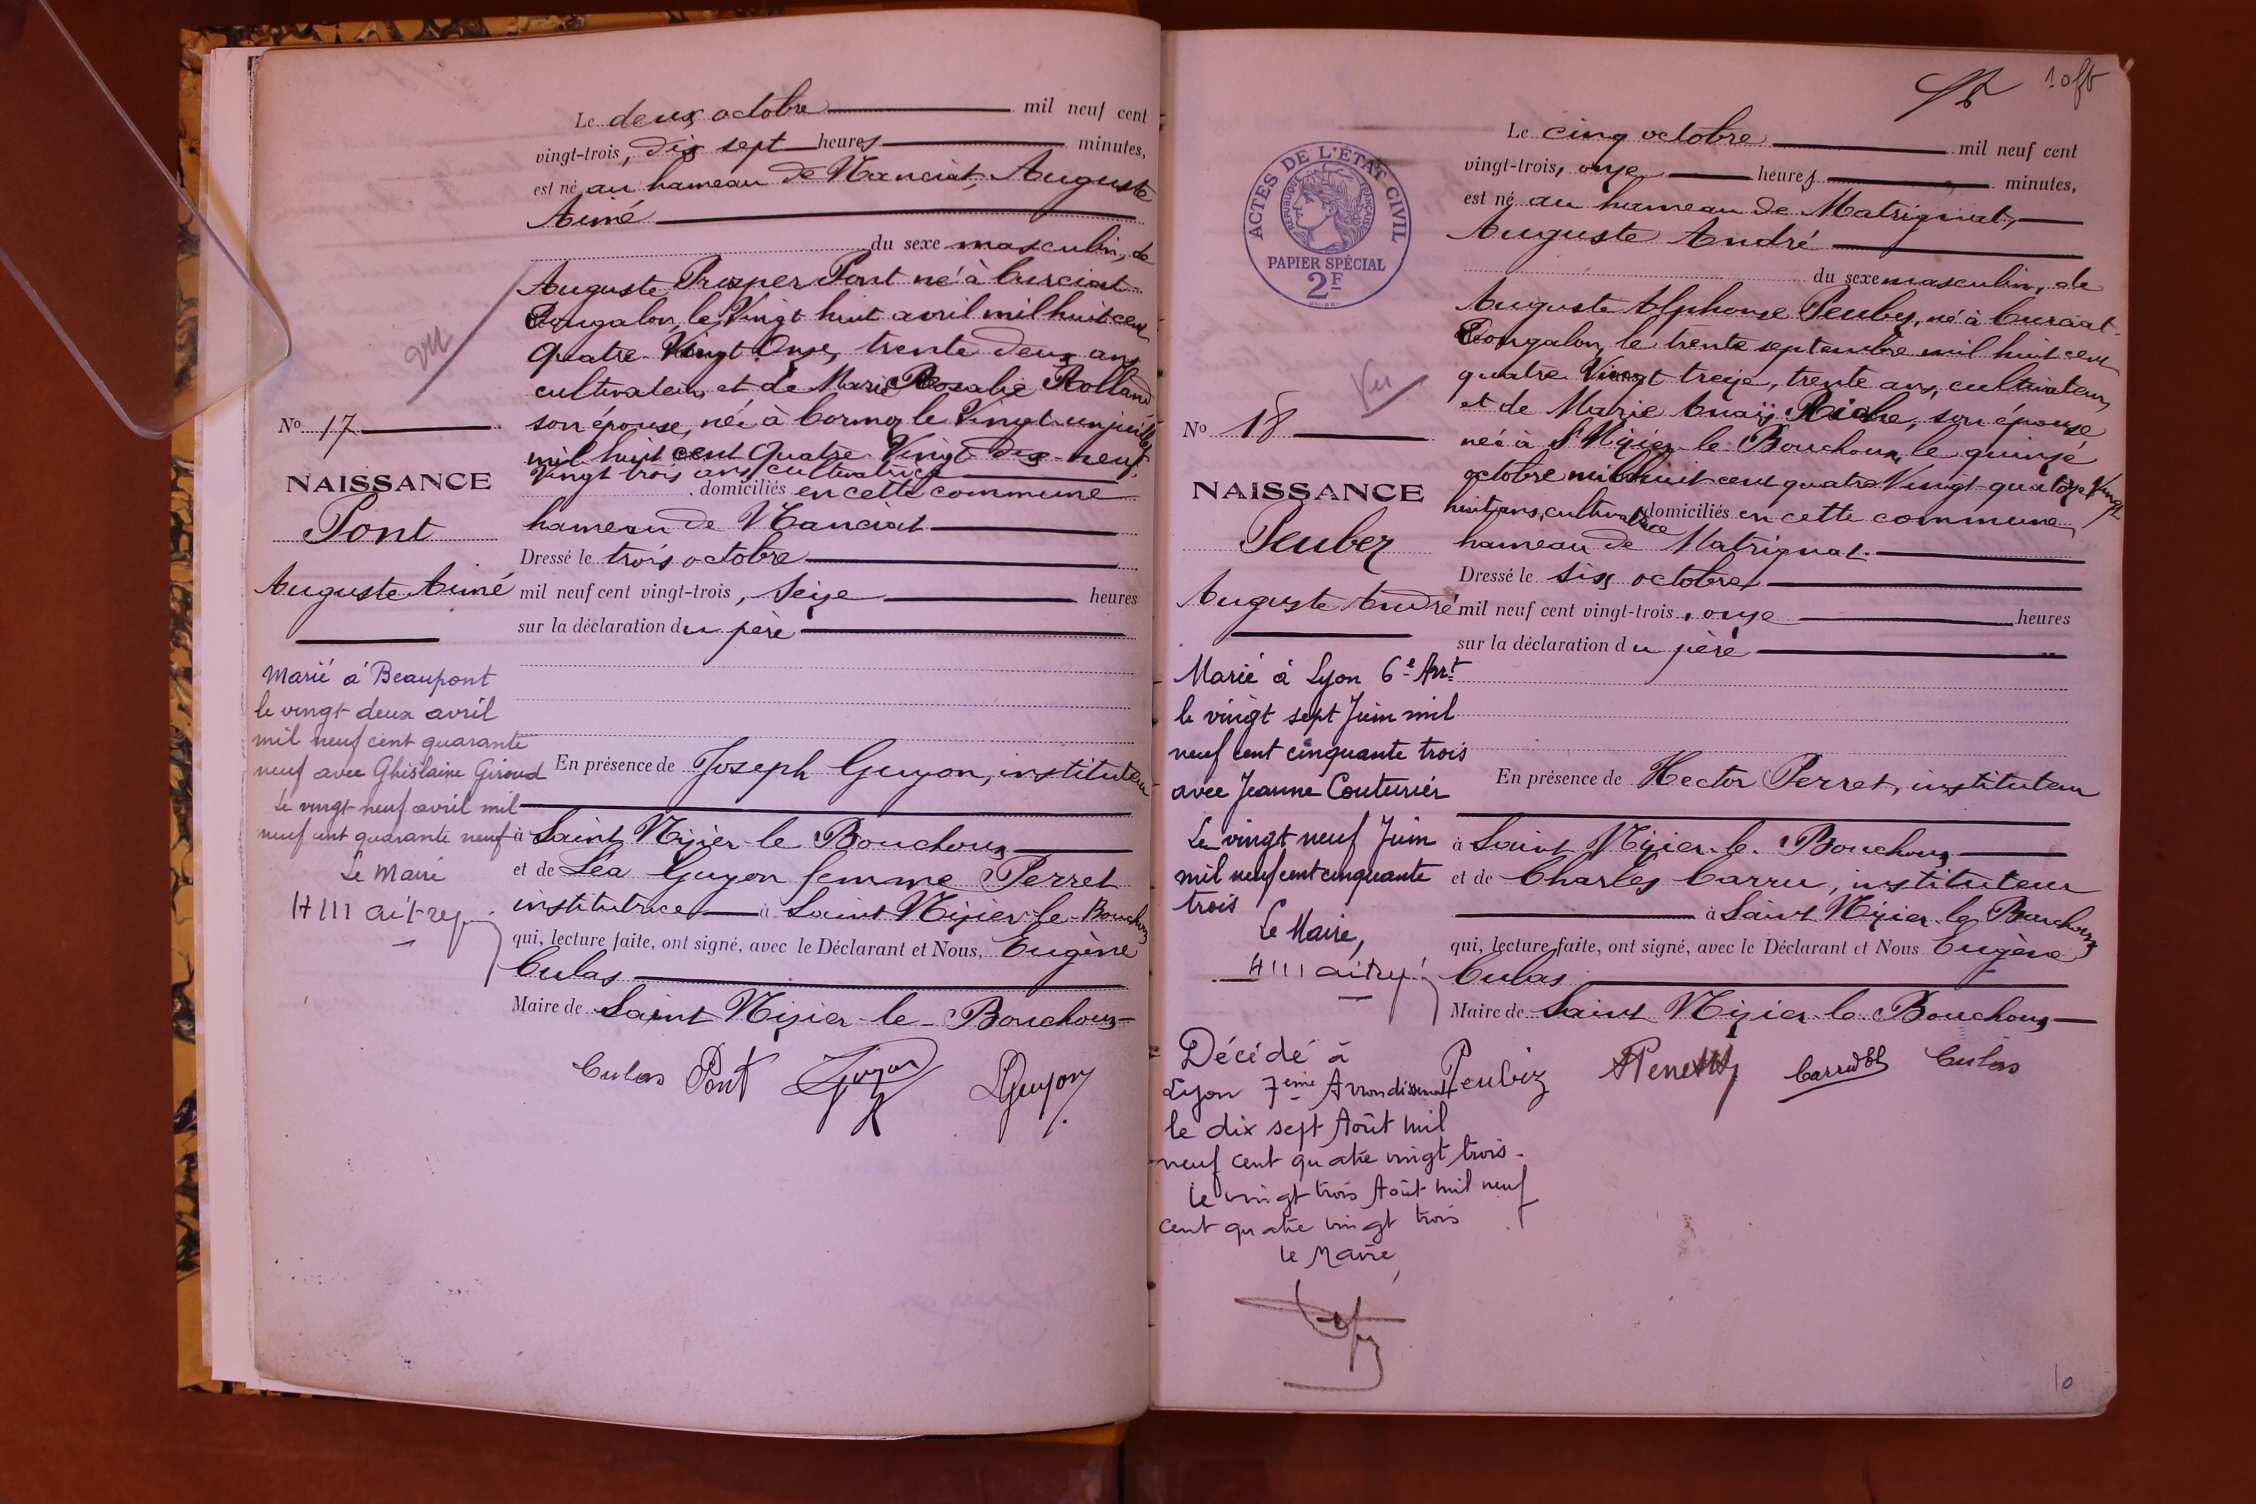 Le deux octobre mil neuf cent
vingt-trois, dix sept heures minutes,
est né au hameau de Nanciat, Auguste
Aimé
du sexe masculin, de
Auguste Prosper Pont né à Curciat-
Dongalon, le Vingt huit avril mil huit cent
Quatre Vingt Onze, trente deux ans
cultivateur, et de Marie Rosalie Rolland
son épouse, née à Cormoz le Vingt un juillet
mil huit cent Quatre Vingt dix neuf
Vingt trois ans cultivatrice
domiciliés en cette commune
hameau de Nanciat
Dressé le trois octobre
mil neuf cent vingt-trois, seize heures
sur la déclaration du père
En présence de Joseph Guyon, instituteur
à Saint Nizier-le-Bouchoux
et de Léa Guyon femme Perret
institutrice à Saint Nizier-le-Bouchoux
qui, lecture faite, ont signé, avec le Déclarant et Nous, Eugène
Culas
Maire de Saint Nizier-le-Bouchoux
Culas Pont Guyon LGuyon
vu
No 17
NAISSANCE
Pont
Auguste Aimé
Marié à Beaupont
le vingt deux avril
mil neuf cent quarante
neuf avec Ghislaine Giroud
Le vingt neuf avril mil
neuf cent quarante neuf
Le Maire
10
Le cinq octobre mil neuf cent
vingt-trois, onze heures minutes,
est né au hameau de Matrignat,
Auguste André
du sexe masculin, de
Auguste Alphonse Peubez, né à Curciat-
Dongalon, le trente septembre mil huit cent
quatre Vingt treize, trente ans, cultivateur,
et de Marie Anaïs Riche, son épouse
née à St Nizier-le-Bouchoux, le quinze
octobre mil huit cent quatre Vingt-quatorze Vingt
huit ans, cultivatrice domiciliés en cette commune
hameau de Matrignat.
Dressé le six octobre
mil neuf cent vingt-trois, onze heures
sur la déclaration du père
En présence de Hector Perret, instituteur
à Saint Nizier-le-Bouchoux
et de Charles Carru, instituteur
à Saint Nizier-le-Bouchoux
qui, lecture faite, ont signé, avec le Déclarant et Nous Eugène
Culas
Maire de Saint Nizier-le-Bouchoux
Peubez Culas
ACTES DE L'ÉTAT CIVIL
RÉPUBLIQUE FRANÇAISE
PAPIER SPÉCIAL
2F
Vu
No 18
NAISSANCE
Peubez
Auguste André
Marié à Lyon 6e Arrt
le vingt sept Juin mil
neuf cent cinquante trois
avec Jeanne Couturier
Le vingt neuf Juin
mil neuf cent cinquante
trois
Le Maire,
Décédé à
Lyon 7ème Arrondissement
le dix sept Août mil
neuf cent quatre vingt trois.
Le vingt trois Août mil neuf
cent quatre vingt trois
Le Maire,
10